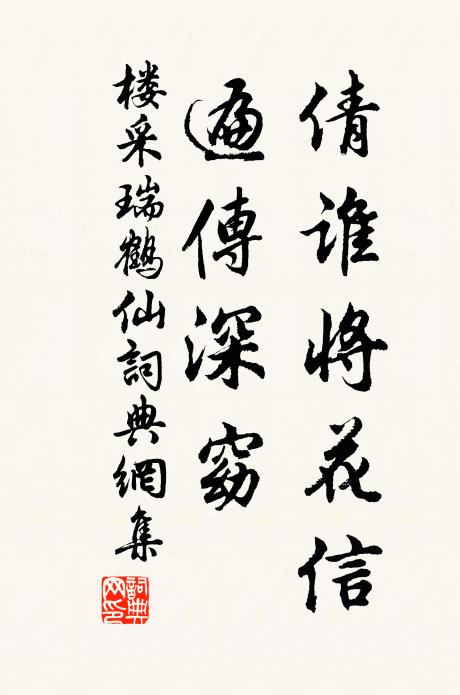 倩谁将花信
遍傳深窈
楼采瑞鶴仙詞典網集
詞典网印